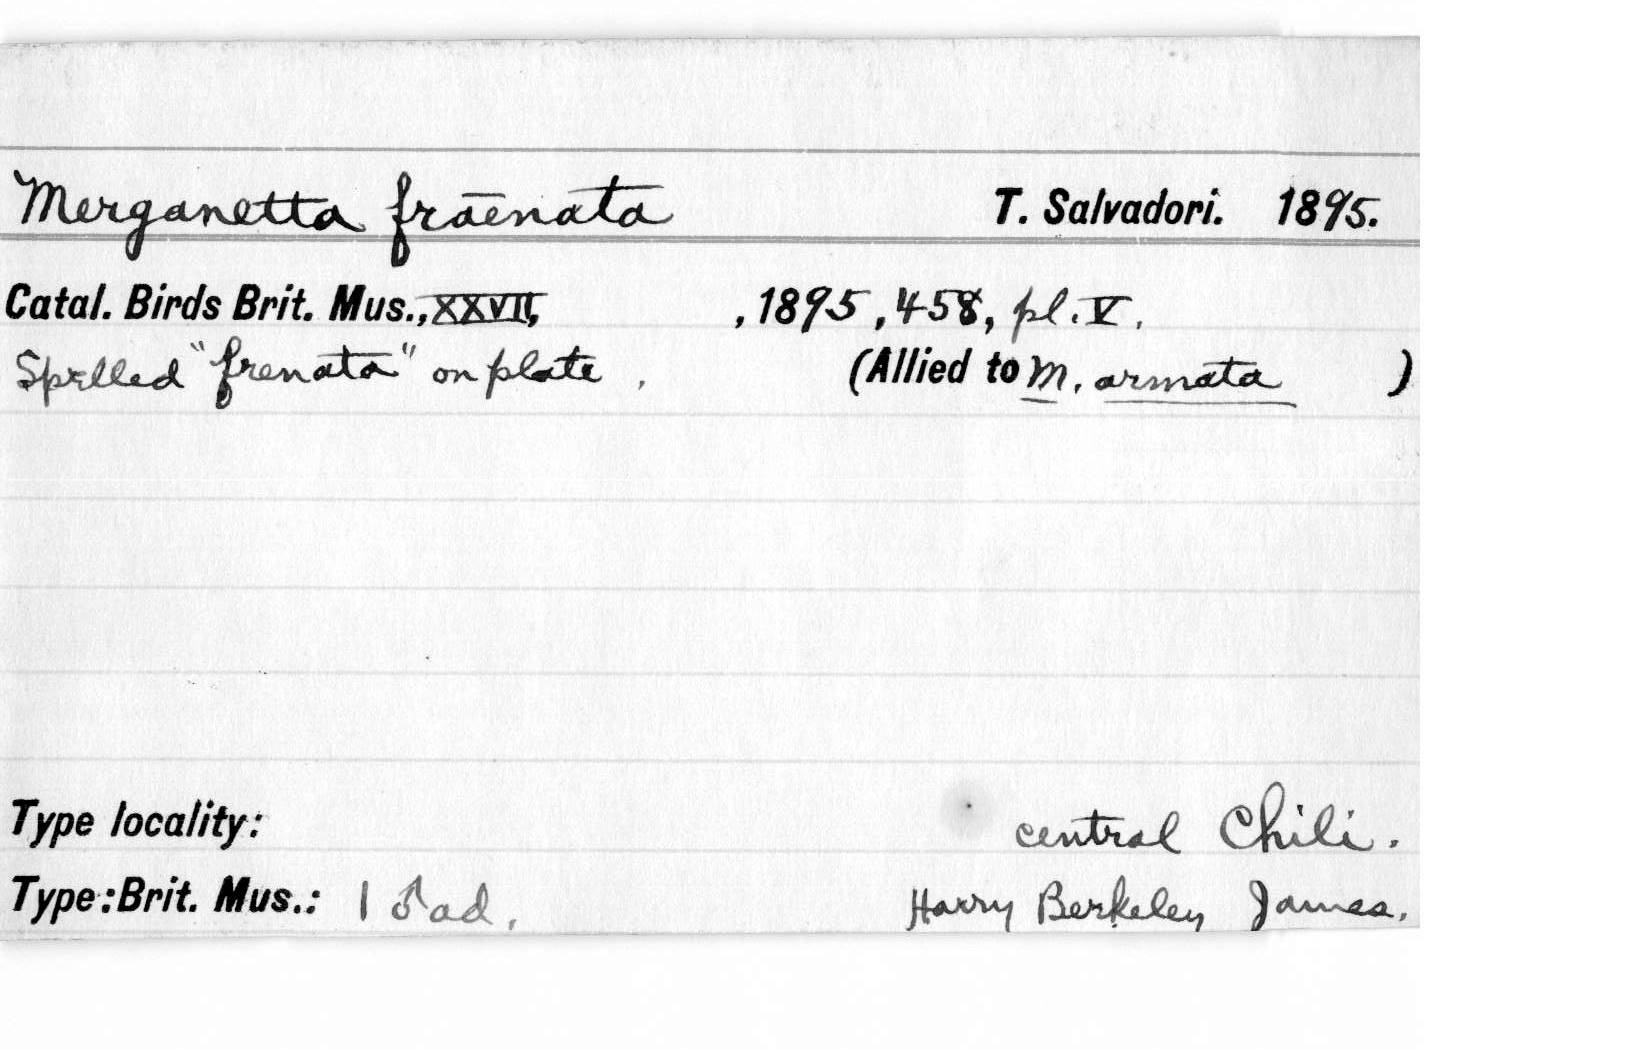 Merganetta fraenata T. Salvadori. 1895.
Catal. Birds Brit. Mus., XXVII, , 1895, 458, pl. V.
Spelled "frenata" on plate. (Allied to M. armata )
Type locality: central Chili.
Type: Brit. Mus.: 1 ♂ ad. Harry Berkeley James.